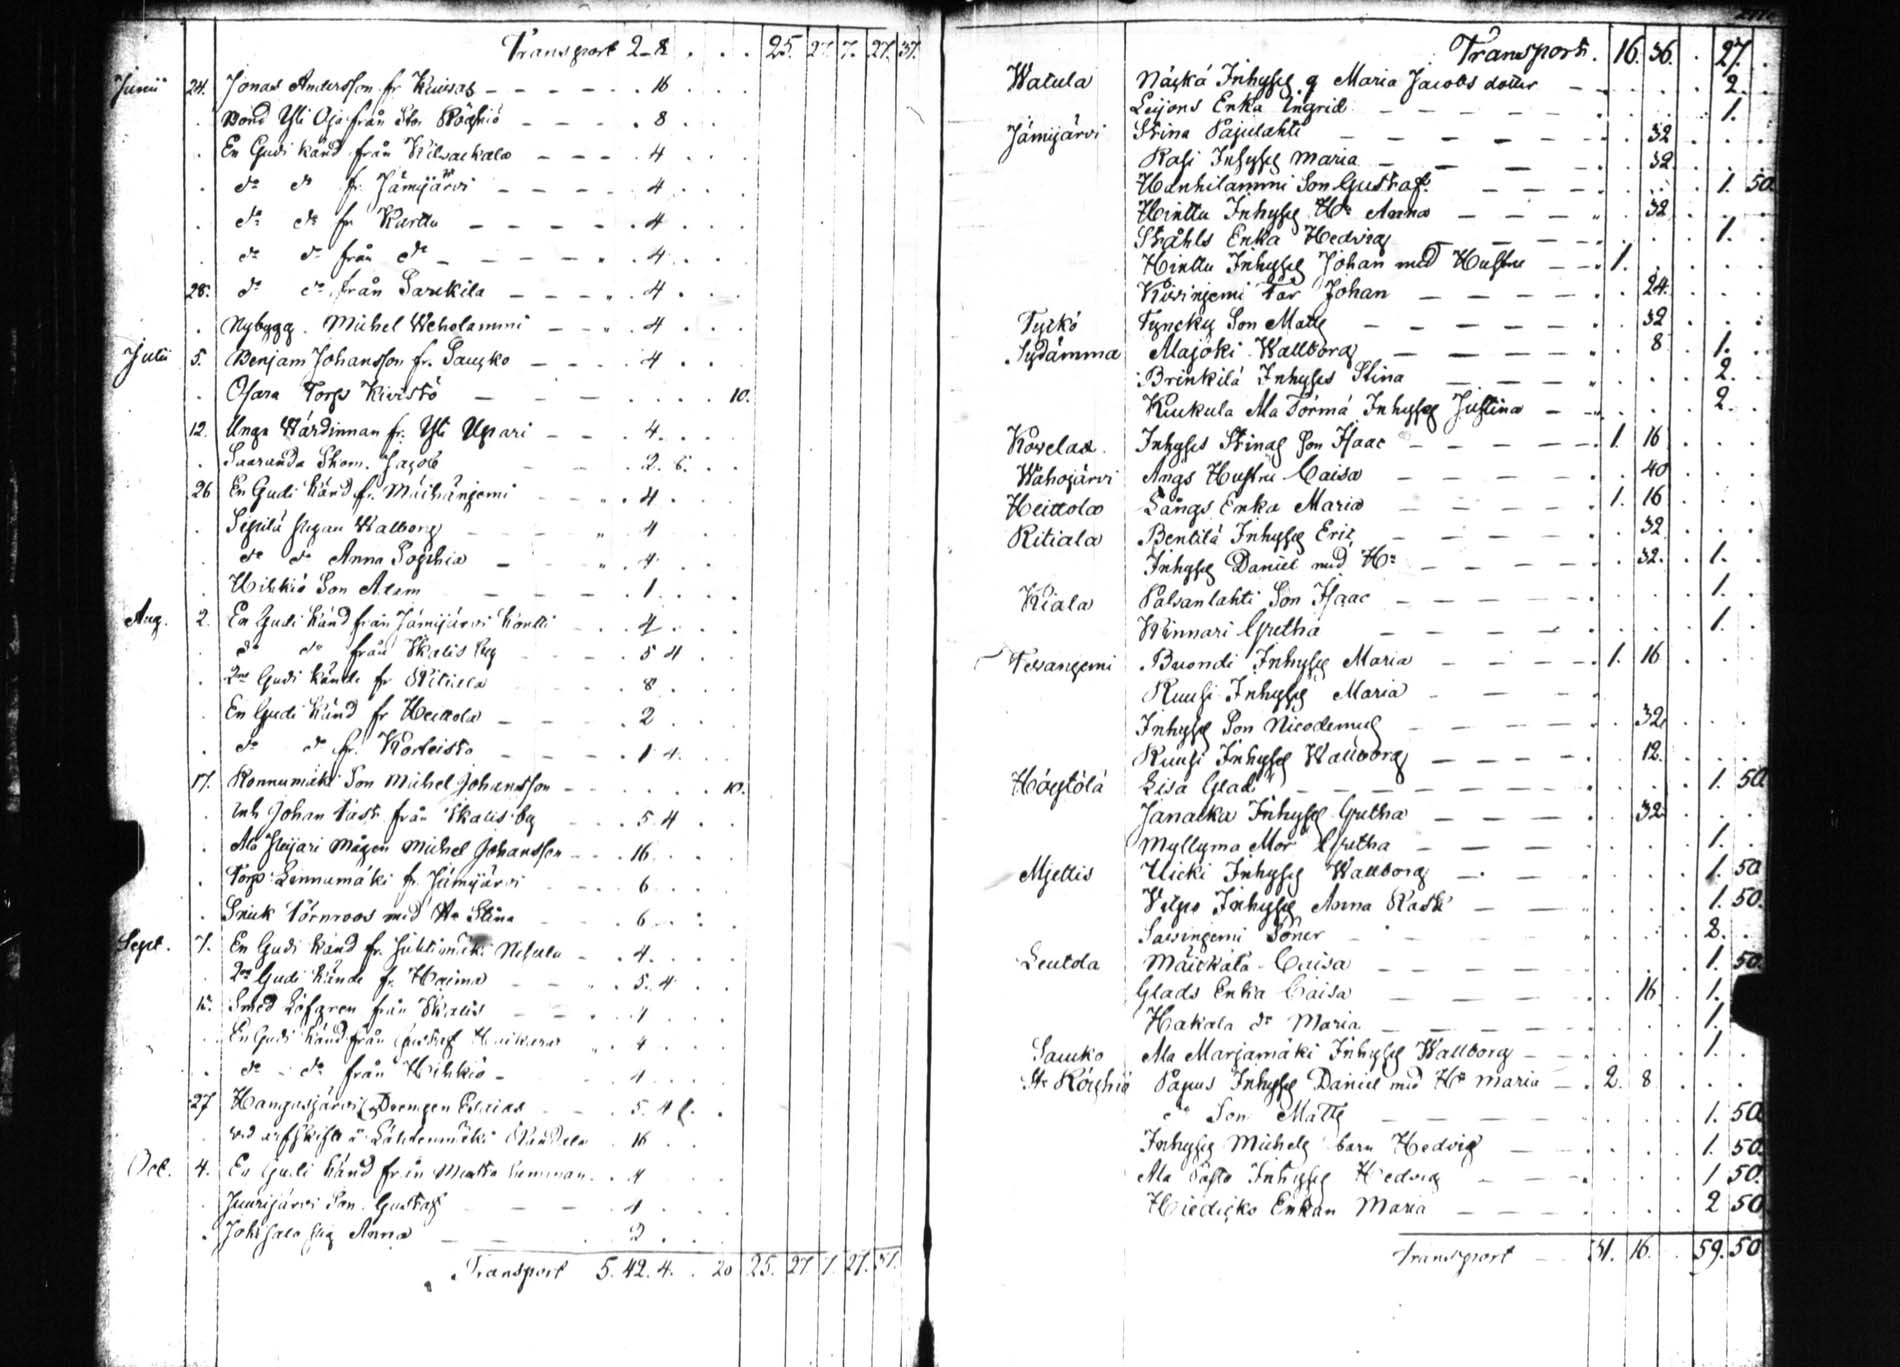 Transport 2 8 . . . 25. 27. 7. 27. 37.
Junii 24. Jonas Andersson fr. Kuivas - - - - - 16 . . .
Bond Yli Oja från Stor Röyhiö - - - - 8 . .
En Gudi känd från Wilsackala - - - 4 . . .
do do fr. Jämijärvi - - - - - 4 . . .
do do fr Kurttu - - - - - 4 . . .
do do från do - - - - - 4 . . .
28. do do från Sarckila - - - - 4 . . .
Nybygg. Michel Weholammi - - - 4 . . .
Julii 5. Benjam Johansson fr. Sauzko - - - - 4 . . .
Torps Kivistö - - - . . . . 10.
12. Unga Wärdinnan fr. Yli Upari - - - 4 . . .
Skom. Jacob - - 2. 6. . .
26 En Gudi känd fr. - - . 4 . . .
Sipilä Walborg - - - 4 . . .
do do Anna Sophia - - . 4 . . .
Hihkiö Son Adam - - - . 1 . . .
Aug. 2. En Gudi känd från Jämijärvi - - 4 . . .
do do från Skalis - - - 5 4 . .
2ne Gudi kände fr Ritiala - - - 8 . . .
En Gudi känd fr Heittola - - - . 2 . . .
do do fr. - - - . 1 4 . .
17. Ronnumäki Son Michel Johansson - - - . . . 10.
Inh Johan från Skalis by - - - 5 4 . .
Ala Mågen Michel Johansson - - - 16 . . .
Torp. Linnumäki fr. Jämijärvi - - - - 6 . . .
Snick Törnroos med Ha Stina - - - 6 . . .
Sept. 7. En Gudi känd fr. - 4 . . .
2ne Gudi kände fr. Haima - - . 5. 4 . .
12. Smed Löfgren från Skalis - - . 4 . . .
En Gudi känd från Gustaf . 4 . . .
do - do från Hihkiö - 4 . . .
27 Hangasjärvi Drengen Esaias - - . 5. 4 . .
16 . .
Oct. 4. En Gudi känd från Matts . 4 . . .
Juurijärvi Son Gustaf - - - 4 . . .
Anna - - - . 2 . . .
Transport 5. 42. 4. . 20 25. 27 7. 27. 37.
Transport. 16. 36 . 27. .
Watula Maria Jacobs dotter - . . . . 2. .
Leijons Enka Ingrid - - - - - . . . 1. .
Jämijärvi Stina Pajulahti - - - - - . 32 . . .
Inhyses Maria - - - - - . 32 . . .
Hanhilammi Son Gustaf. - - - - . . . 1. 50
Hinttu Inhyses Ha Anna - - - - . 32 . . .
Ståhls Enka Hedvig - - - - . . . 1. .
Hinttu Inhyses Johan med Hustru - - 1. . . . .
Far Johan - - - - - . 24. . . .
Tyrkö Son Matts - - - - - . 32 . . .
Sydämma Alajoki Wallborg - - - - - . 8 . 1. .
Brinkilä Inhyses Stina - - - - . . . 2. .
Kuukula Ala Törmä Inhyses Justina - . . . 2. .
Kovelax. Inhyses Stinas Son Isaac - - - - 1. 16 . . .
Wahojärvi Ångs Hustru Caisa - - - - - . 40 . . .
Heittola Långs Enka Maria - - - - . 1. 16 . . .
Ritiala Bentilä Inhyses Eric - - - - - . 32 . . .
Inhyses Daniel med Ha - - - - . 32. . 1. .
Kiala Palsanlahti Son Isaac - - - - - . . . 1. .
Winnari Gretha - - - - . . . 1. .
Buondi Inhyses Maria - - - - 1. 16 . . .
Ruusi Inhyses Maria - - - -
Inhyses Son Nicodemus - - - - . 32 . . .
Ruusi Inhyses Wallborg - - - - . 12. . . .
Höystölä Lisa Glad - - - - - - . . . 1. 50
Janakka Inhyses Gretha - - - - . 32 . . .
Myllyma Mor Gretha - - - - . . . 1. .
Mjettis Uicki Inhyses Wallborg - - - - . . . 1. 50
Wilpo Inhyses Anna Rask - - . . . 1. 50.
Söner - - . . . 2. .
Leutola Caisa - - - - - . . . 1. 50.
Glads Enka Caisa - - - - . 16 . 1. .
Hakala do Maria - - - - - . . . 1. .
Sauko Ala Marjamäki Inhyses Wallborg - - . . . 1. .
St Röyhiö Pajus Inhyses Daniel med Ha Maria - . 2. 8 . . .
do Son Matts - - - - - . . . 1. 50
Inhyses Michels barn Hedvig - - - . . . 1. 50.
Ala Inhyses Hedvig - - - . . . 1 50.
Enkan Maria - - - - . . . 2 50
Transport - - 31. 16. . 59. 50